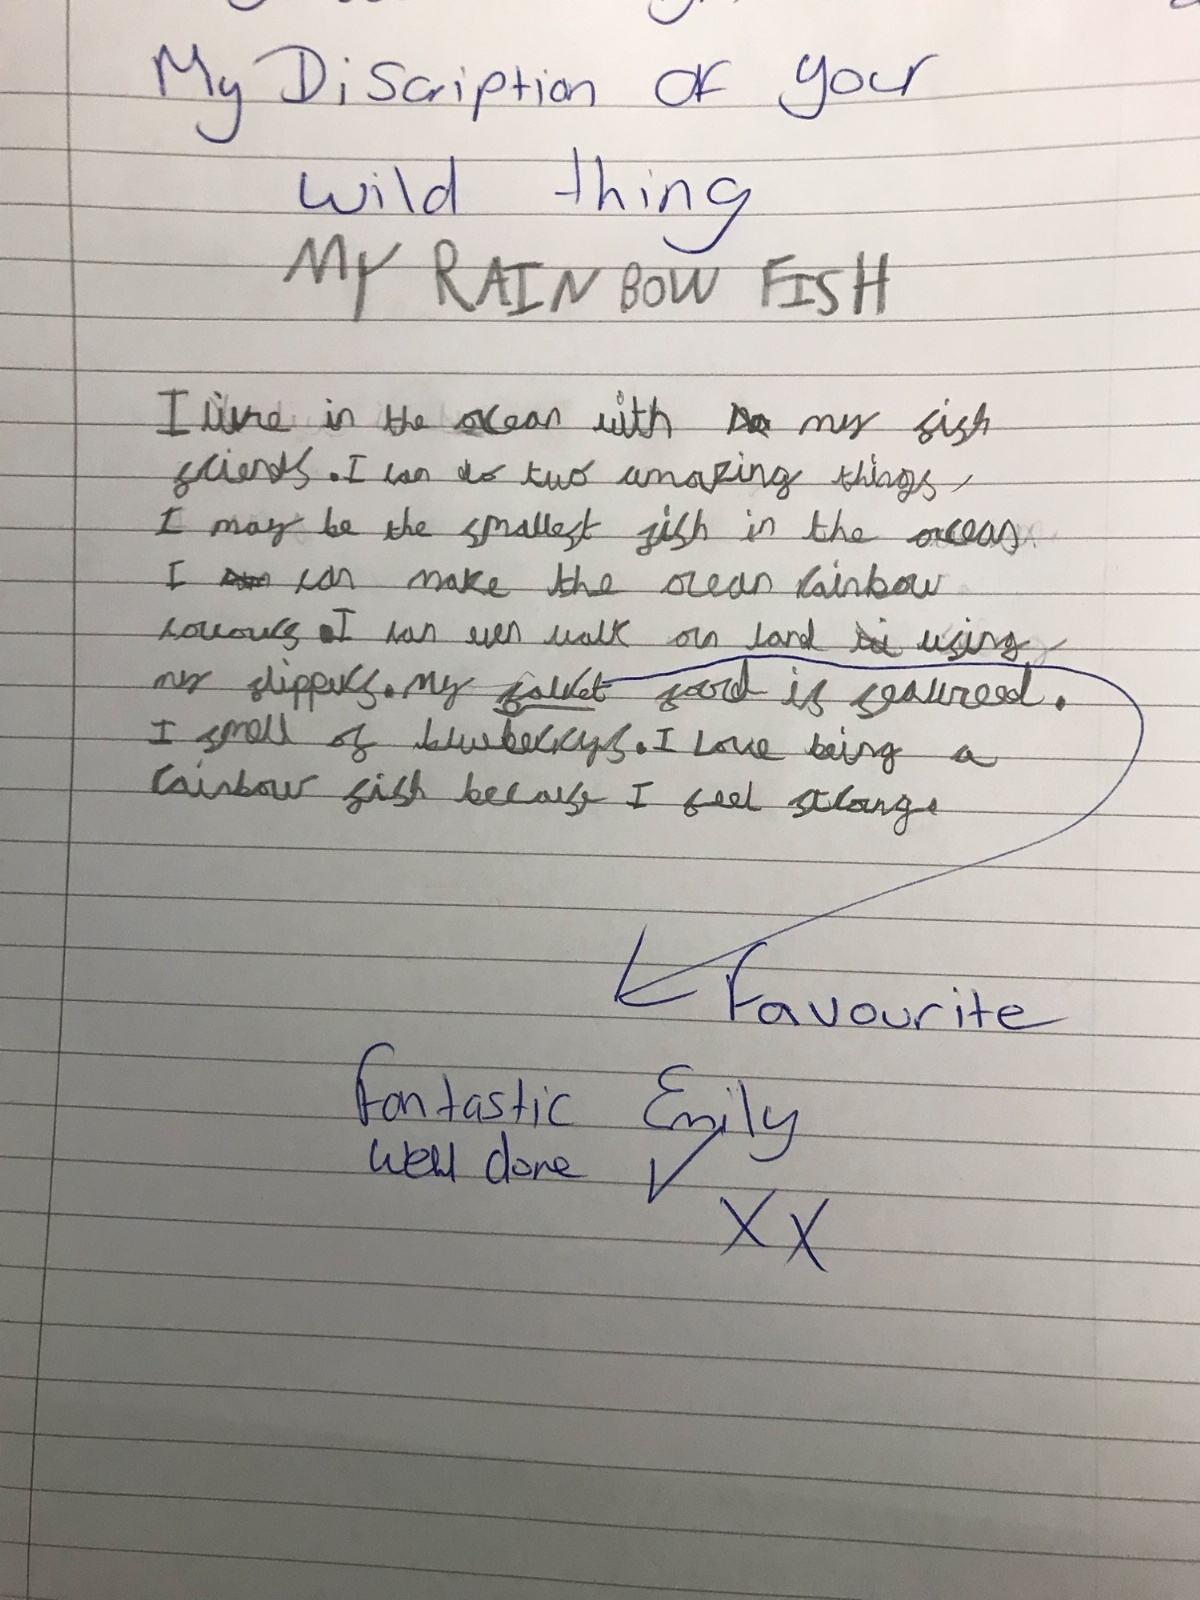 My Discription of your
wild thing
MY RAINBOW FISH
I live in the ocean with my fish
friends. I can do two amazing things,
I may be the smallest fish in the ocean
I can make the ocean rainbow
I can even walk on land using
my slippers. My food is seaweed.
I smell of blueberrys. I Love being a
rainbow fish because I feel strong.
Favourite
Fantastic Emily
Well done
XX